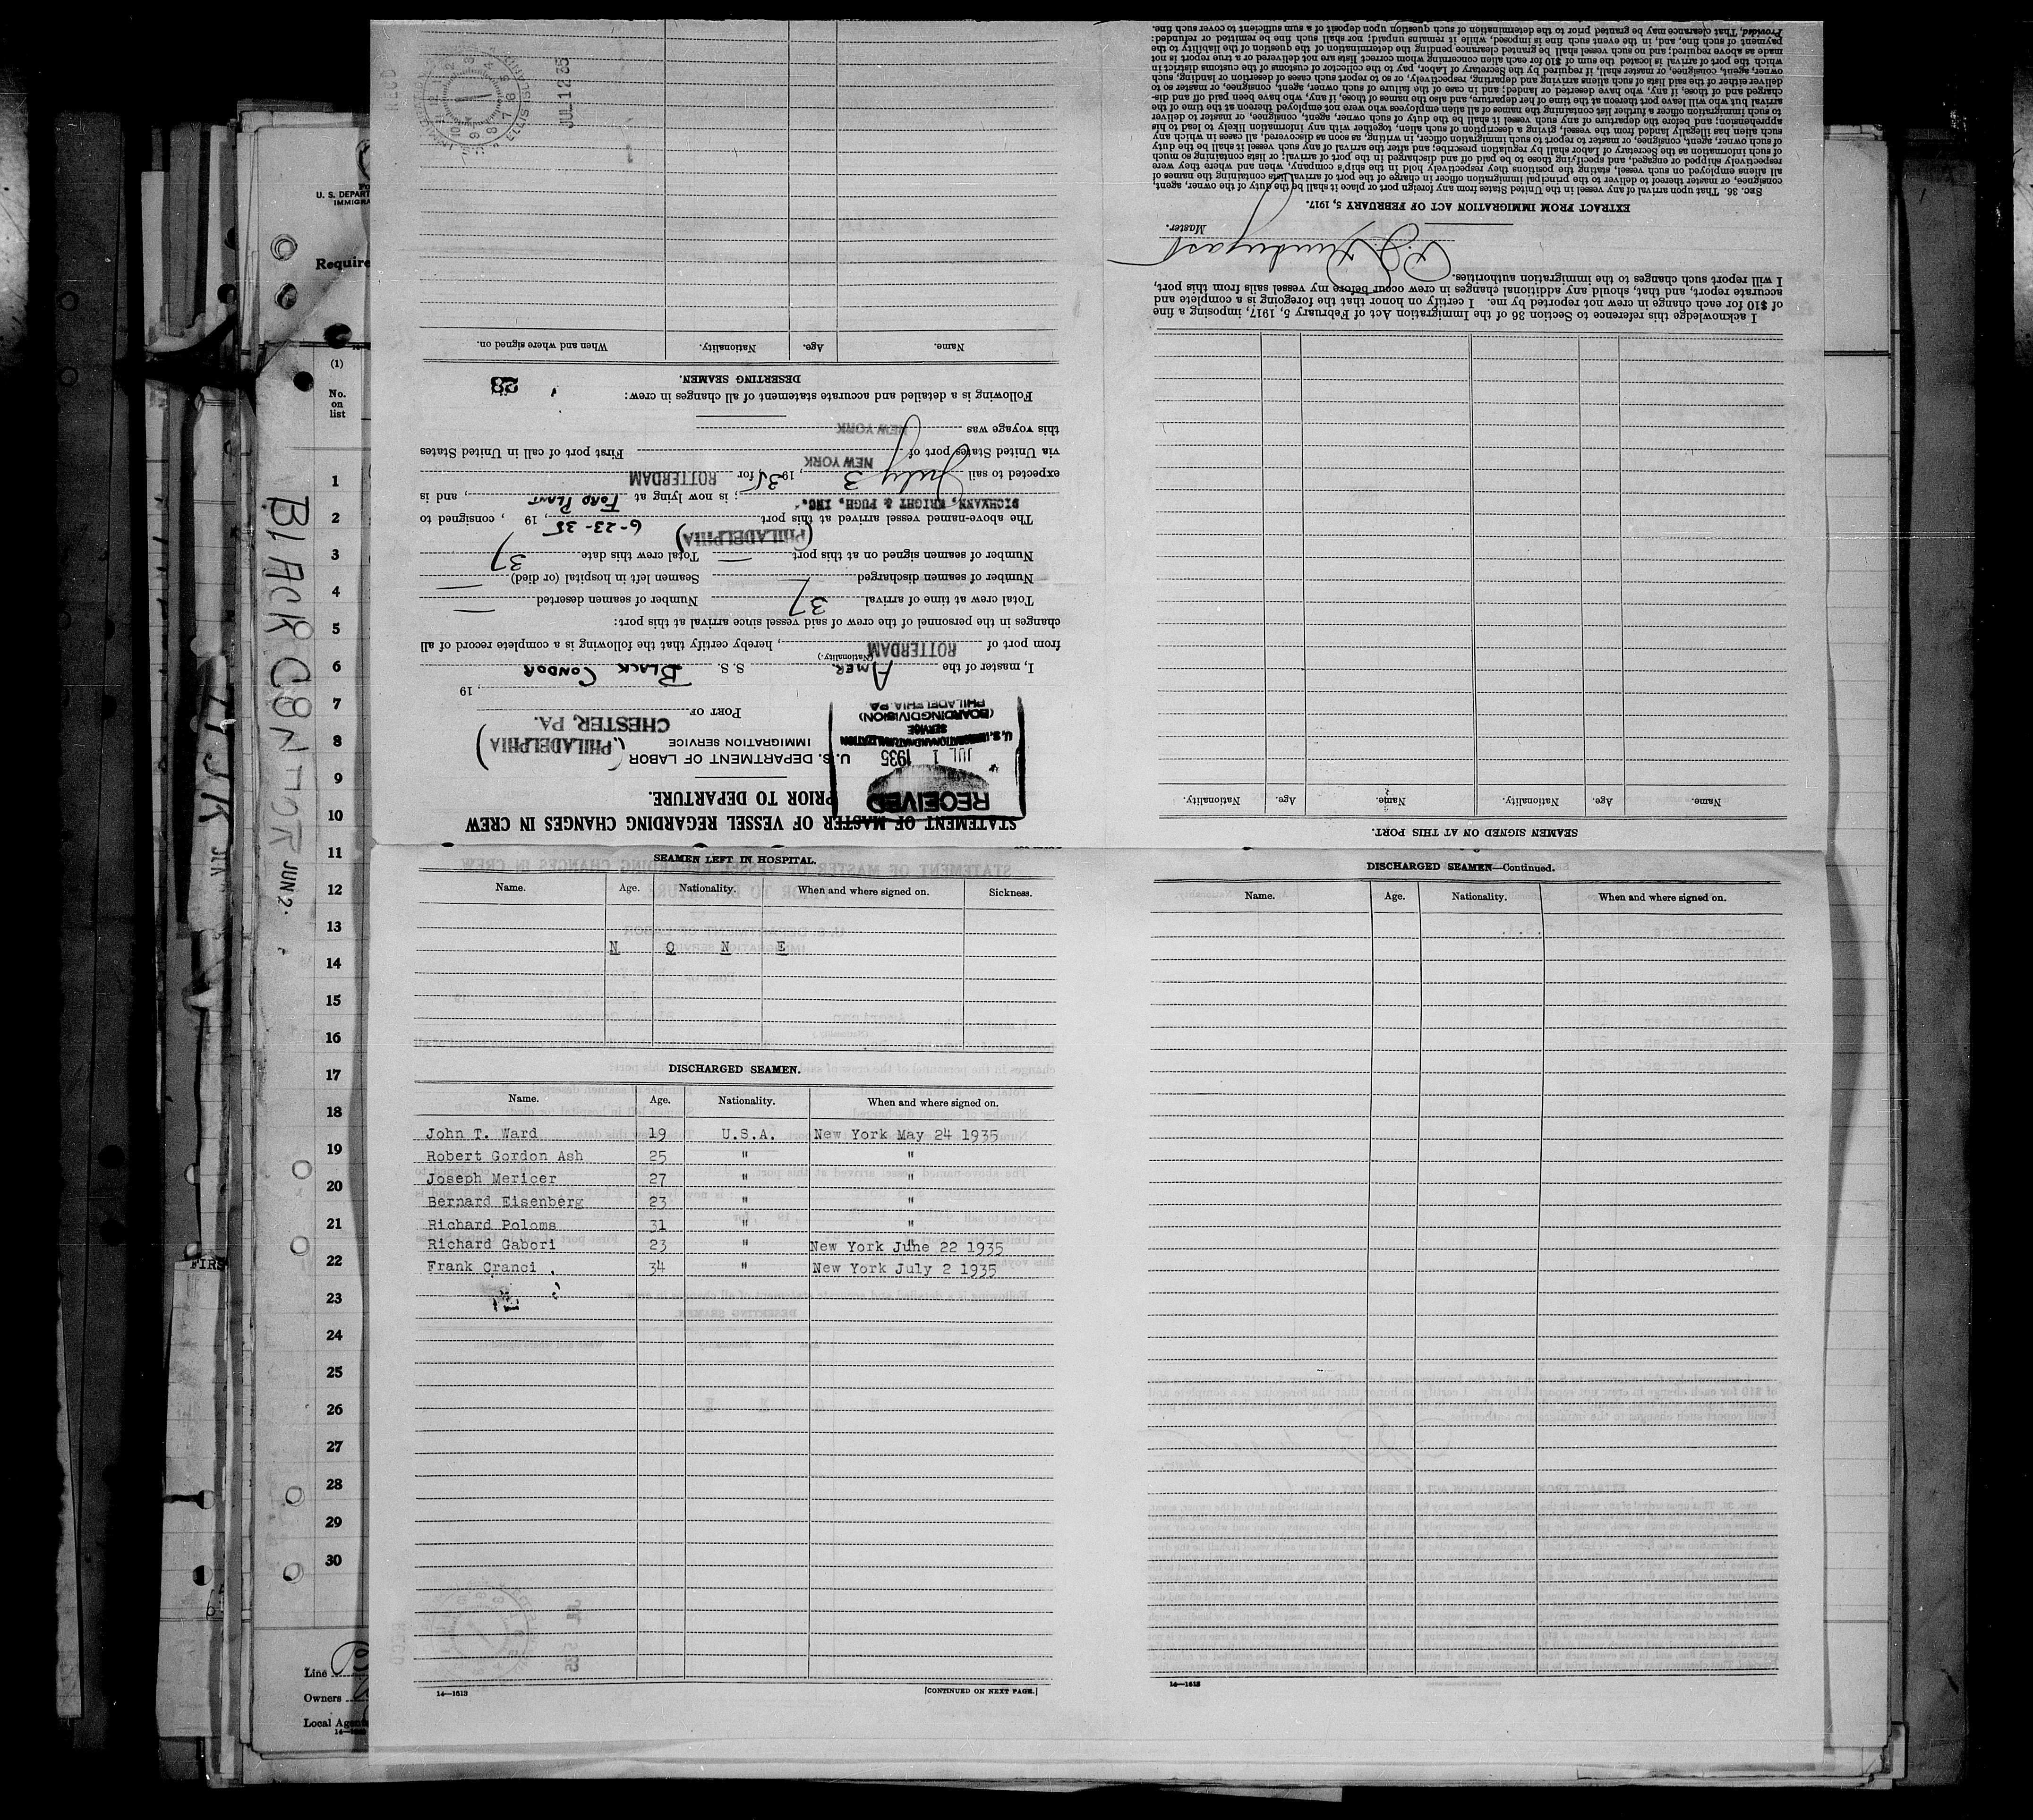 STATEMENT OF MASTER OF VESSEL REGARDING CHANGES IN CREW
PRIOR TO DEPARTURE.
RECEIVED
JUL 1 1935
U.S. IMMIGRATION AND NATURALIZATION
SERVICE
(BOARDING DIVISION)
PHILADELPHIA PA
U. S. DEPARTMENT OF LABOR
IMMIGRATION SERVICE
(PHILADELPHIA)
CHESTER, PA.
PORT OF
, 19
I, master of the AMER S. S. BLACK CONDOR
(Nationality.)
from port of ROTTERDAM, hereby certify that the following is a complete record of all
changes in the personnel of the crew of said vessel since arrival at this port:
Total crew at time of arrival 37 Number of seamen deserted —
Number of seamen discharged — Seamen left in hospital (or died) —
Number of seamen signed on at this port — Total crew this date 37
(PHILADELPHIA)
The above-named vessel arrived at this port 6-23-35, 19 , consigned to
DICHMANN, WRIGHT & PUGH, INC.; is now lying at FORD PLANT, and is
expected to sail July 3, 1935 for ROTTERDAM
via United States port of NEW YORK First port of call in United States
this voyage was NEW YORK
Following is a detailed and accurate statement of all changes in crew:
28
DESERTING SEAMEN.
Name. Age. Nationality. When and where signed on.
JUL 12 35
REC'D
ELLIS ISLAND
SEAMEN SIGNED ON AT THIS PORT.
Name. Age. Nationality. Name. Age. Nationality.
I acknowledge this reference to Section 36 of the Immigration Act of February 5, 1917, imposing a fine
of $10 for each change in crew not reported by me. I certify on honor that the foregoing is a complete and
accurate report, and that, should any additional changes in crew occur before my vessel sails from this port,
I will report such changes to the immigration authorities.
Master.
EXTRACT FROM IMMIGRATION ACT OF FEBRUARY 5, 1917.
SEC. 36. That upon arrival of any vessel in the United States from any foreign port or place it shall be the duty of the owner, agent,
consignee, or master thereof to deliver to the principal immigration officer in charge of the port of arrival lists containing the names of
all aliens employed on such vessel, stating the positions they respectively hold in the ship's company, when and where they were
respectively shipped or engaged, and specifying those to be paid off and discharged in the port of arrival; or lists containing so much
of such information as the Secretary of Labor shall by regulation prescribe; and after the arrival of any such vessel it shall be the duty
of such owner, agent, consignee, or master to report to such immigration officer, in writing, as soon as discovered, all cases in which any
such alien has illegally landed from the vessel, giving a description of such alien, together with any information likely to lead to his
apprehension; and before the departure of any such vessel it shall be the duty of such owner, agent, consignee, or master to deliver
to such immigration officer a further list containing the names of all alien employees who were not employed thereon at the time of the
arrival but who will leave port thereon at the time of her departure, and also the names of those, if any, who have been paid off and dis-
charged and of those, if any, who have deserted or landed; and in case of the failure of such owner, agent, consignee, or master so to
deliver either of the said lists of such aliens arriving and departing, respectively, or so to report such cases of desertion or landing, such
owner, agent, consignee, or master, shall, if required by the Secretary of Labor, pay to the collector of customs of the customs district in
which the port of arrival is located the sum of $10 for each alien concerning whom correct lists are not delivered or a true report is not
made as above required; and no such vessel shall be granted clearance pending the determination of the question of the liability to the
payment of such fine, and, in the event such fine is imposed, while it remains unpaid; nor shall such fine be remitted or refunded:
Provided, That clearance may be granted prior to the determination of such question upon deposit of a sum sufficient to cover such fine.
SEAMEN LEFT IN HOSPITAL.
Name. Age. Nationality. When and where signed on. Sickness.
N O N E
DISCHARGED SEAMEN.
Name. Age. Nationality. When and where signed on.
John T. Ward 19 U.S.A. New York May 24 1935
Robert Gordon Ash 25 " "
Joseph Mericer 27 " "
Bernard Eisenberg 23 " "
Richard Poloms 31 " "
Richard Gabori 23 " New York June 22 1935
Frank Cranci . 34 " New York July 2 1935
14—1613 [CONTINUED ON NEXT PAGE.]
DISCHARGED SEAMEN—Continued.
Name. Age. Nationality. When and where signed on.
14—1613
U. S. DEPART
IMMIGRA
Require
(1)
No.
on
list
1
2
3
4
5
6
7
8
9
10
11
12
13
14
15
16
17
18
19
20
21
22
23
24
25
26
27
28
29
30
BLACK CONDOR JUN 2
FIRS
Line
Owners
Local Agent